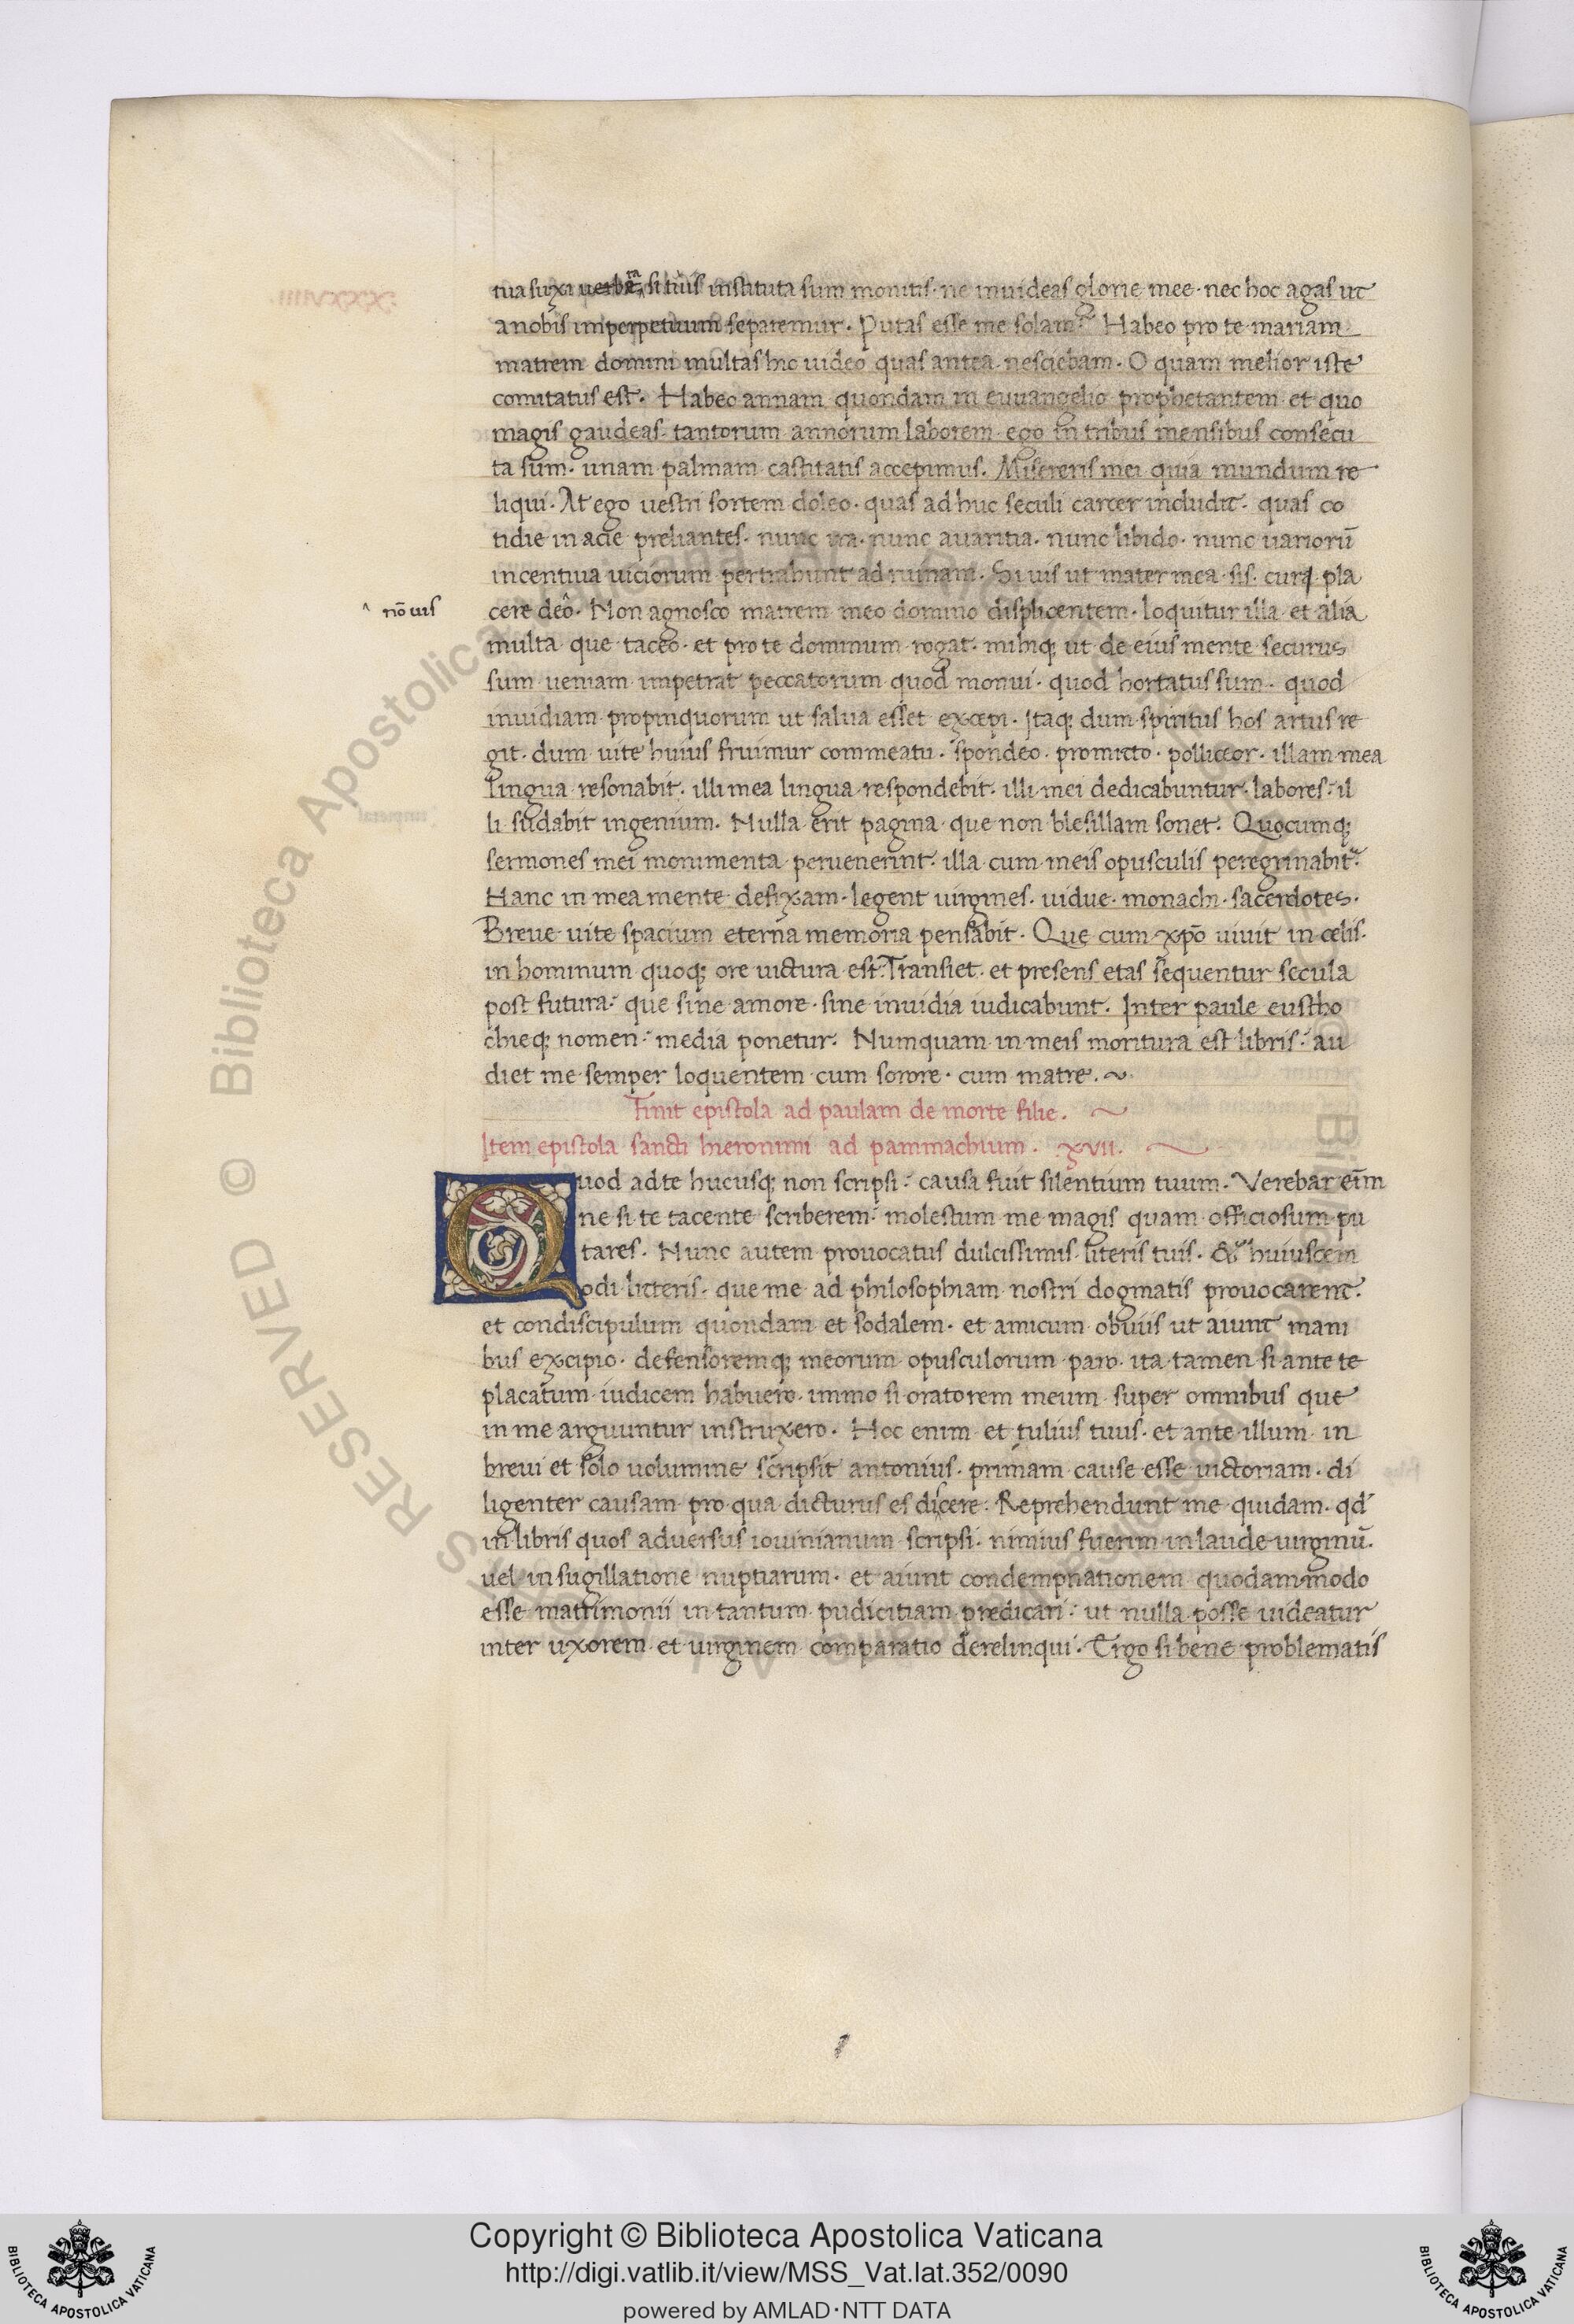 tua suxi ubera, si tuis instituta sum monitis· ne inuideas glorie mee· nec hoc agas ut
a nobis imperpetuum separemur· Putas esse me solam? Habeo pro te mariam
matrem domini multas hic uideo quas antea nesciebam· O quam melior iste
comitatus est· Habeo annam quondam in euuangelio prophetantem et quo
magis gaudeas tantorum annorum laborem ego in tribus mensibus consecu
ta sum· unam palmam castitatis accepimus· Misereris mei quia mundum re
liqui· At ego uestri sortem doleo· quas ad huc seculi carcer includit· quas co
tidie in acie preliantes· nunc ira· nunc auaritia· nunc libido· nunc uariorū
incentiua uiciorum pertrahunt ad ruinam· Si uis ut mater mea sis· cura pla
^ nō uis
cere deo· Non agnosco matrem meo domino displicentem· loquitur illa et alia
multa que taceo· et pro te dominum rogat· mihiq; ut de eius mente securus
sum ueniam impetrat peccatorum quod monui· quod hortatus sum· quod
inuidiam propinquorum ut salua esset excepi· Itaq; dum spiritus hos artus re
git· dum uite huius fruimur commeatu· spondeo· promitto· polliceor· illam mea
lingua resonabit· illi mea lingua respondebit· illi mei dedicabuntur labores· il
li sudabit ingenium· Nulla erit pagina que non blesillam sonet· Quocumq;
sermones mei monumenta peruenerint· illa cum meis opusculis peregrinabit̄·
Hanc in mea mente defixam· legent uirgines· uidue· monachi· sacerdotes·
Breue uite spacium eterna memoria pensabit· Que cum xpō uiuit in celis·
in hominum quoq; ore uictura est· Transiet et presens etas sequentur secula
post futura· que sine amore· sine inuidia iudicabunt· Inter paule eustho
chieq; nomen· media ponetur· Numquam in meis moritura est libris· au
diet me semper loquentem cum sorore· cum matre·
Finit epistola ad paulam de morte filie·
Item epistola sancti hieronimi ad pammachium· xvii·
Quod ad te hucusq; non scripsi· causa fuit silentium tuum· Verebar eīm
ne si te tacente scriberem· molestum me magis quam officiosum pu
tares· Nunc autem prouocatus dulcissimis literis tuis· & huiuscem
odi litteris· que me ad philosophiam nostri dogmatis prouocarent·
et condiscipulum quondam et sodalem· et amicum obuiis ut aiunt mani
bus excipio· defensoremq; meorum opusculorum paro· ita tamen si ante te
placatum iudicem habuero· immo si oratorem meum super omnibus que
in me arguuntur instruxero· Hoc enim et tulius tuus· et ante illum in
breui et solo uolumine scripsit antonius· primam cause esse uictoriam· di
ligenter causam pro qua dicturus es dicere· Reprehendunt me quidam· qd'
in libris quos aduersus iouinianum scripsi· nimius fuerim in laude uirginū·
uel in sugillatione nuptiarum· et aiunt condempnationem quodammodo
esse matrimonii in tantum pudicitiam predicari· ut nulla posse uideatur
inter uxorem et uirginem comparatio derelinqui· Ergo si bene problematis
Copyright © Biblioteca Apostolica Vaticana
http://digi.vatlib.it/view/MSS_Vat.lat.352/0090
powered by AMLAD·NTT DATA
BIBLIOTECA APOSTOLICA VATICANA
BIBLIOTECA APOSTOLICA VATICANA